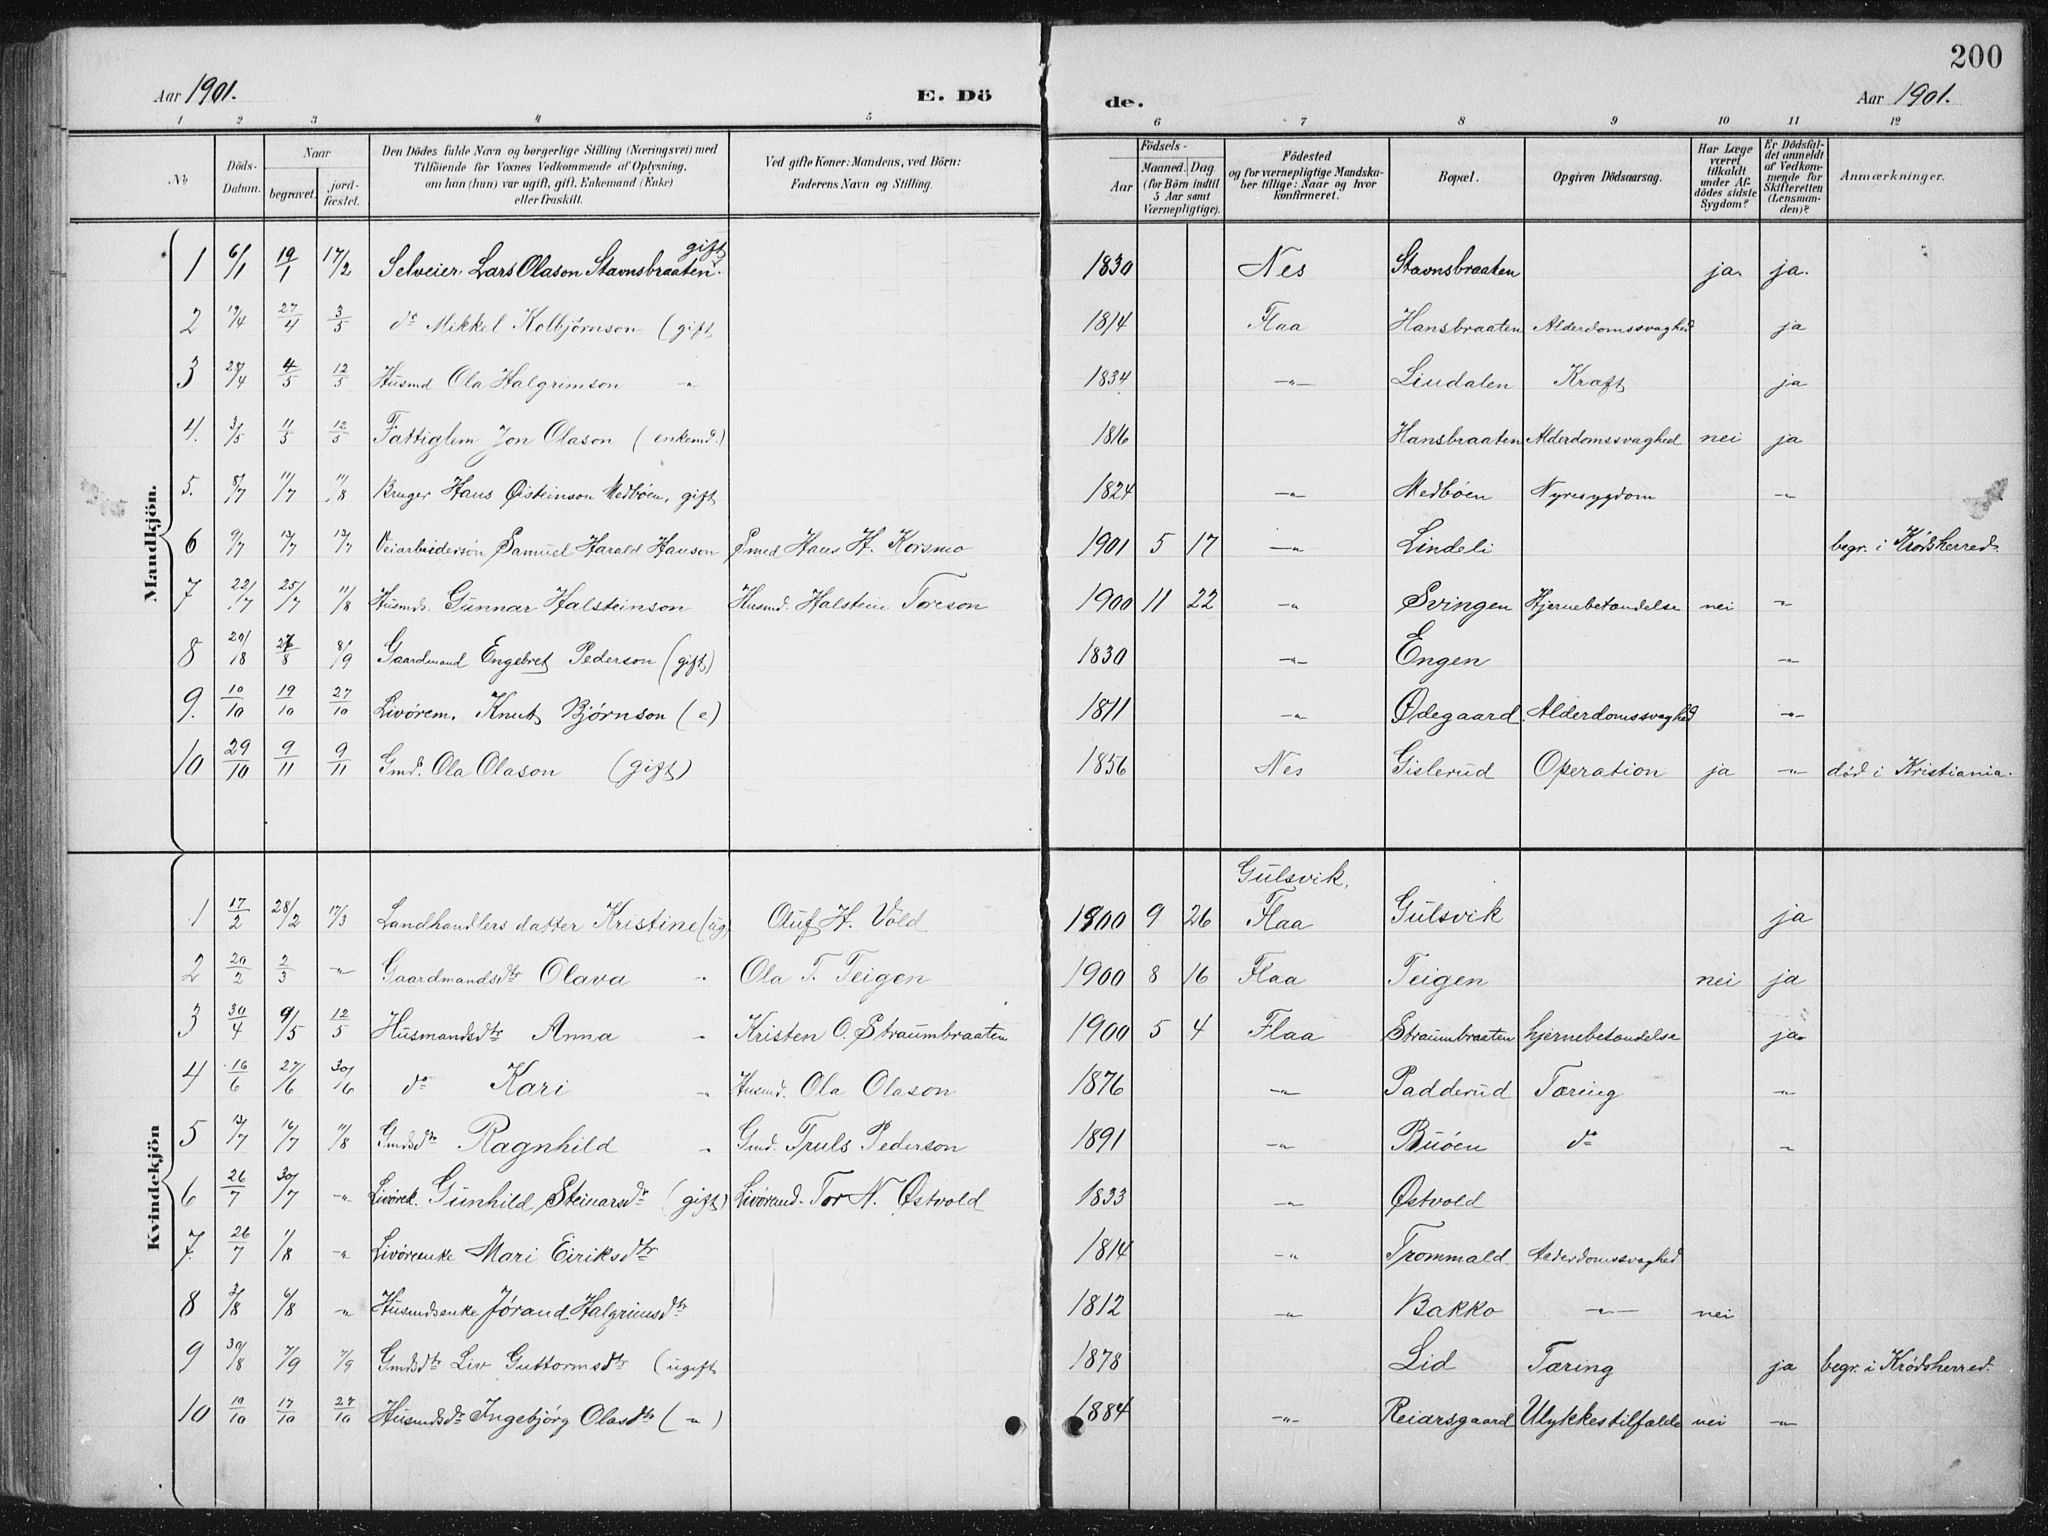 200
Aar 1901. E. Dö de. Aar 1901.
1 2 3 4 5 6 7 8 9 10 11 12
№ Döds-Datum. Naar begravet. jord-fæstet. Den Dödes fulde Navn og borgerlige Stilling (Næringsvei) med Tilföiende for Voxnes Vedkommende af Oplysning, om han (hun) var ugift, gift, Enkemand (Enke) eller fraskilt. Ved gifte Koner: Mandens, ved Börn: Faderens Navn og Stilling. Aar Födsels- Maaned. Dag. (for Börn indtil 5 Aar samt Værnepligtige). Födested og for værnepligtige Mandskaber tillige: Naar og hvor konfirmeret. Bopæl. Opgiven Dödsaarsag. Har Læge været tilkaldt under Afdödes sidste Sygdom? Er Dödsfaldet anmeldt af Vedkommende for Skifteretten (Lensmanden)? Anmærkninger.
Mandkjön.
1 6/1 19/1 17/2 Selveier. Lars Olason Stavnsbraaten. gift 1830 Nes Stavnsbraaten ja. ja.
2 19/4 27/4 3/5 do Mikkel Kolbjørnson (gift 1814 Flaa Hansbraaten Alderdomssvaghed ja
3 28/4 4/5 12/5 Husmd Ola Halgrimson -"- 1834 -"- Lindalen Kræft ja
4. 3/5 11/5 12/5 Fattiglem Jon Olason (enkemd.) 1816 Hansbraaten Alderdomssvaghed nei ja
5. 8/7 11/7 11/8 Bruger Hans Øisteinson Medbøen, gift 1824 -"- Medbøen Nyresygdom -"-
6 9/7 13/7 13/7 Veiarbeidersøn Samuel Harald Hanson Smed Hans H. Korsmo 1901 5 17 -"- Lindeli begr. i Krødsherred.
7 22/7 25/7 11/8 Husmds. Gunnar Halsteinson Husmd. Halstein Toreson 1900 11 22 -"- Svingen Hjernebetændelse nei -"-
8 20/8 27/8 8/9 Gaardmand Engebret Pederson (gift) 1830 -"- Engen -"-
9. 10/10 19/10 27/10 Livørem. Knut Bjørnson (e) 1811 -"- Ødegaard Alderdomssvaghed -"-
10 29/10 9/11 9/11 Gmd. Ola Olason (gift) 1856 Nes Gislerud Operation ja -"- død i Kristiania.
Kvindekjön
Gulsvik,
1 17/2 28/2 17/3 Landhandlers datter Kristine (ug) Oluf H. Vold 1900 9 26 Flaa Gulsvik ja
2 20/2 2/3 -"- Gaardmandsdtr Olava -"- Ola T. Teigen 1900 8 16 Flaa Teigen nei ja
3 30/4 9/5 12/5 Husmandsdtr Anna -"- Kristen O. Straumbraaten 1900 5 4 Flaa Straumbraaten hjernebetændelse ja
4 16/6 27/6 30/6 do Kari -"- Husmd. Ola Olason 1876 -"- Padderud Tæring -"-
5 13/7 16/7 11/8 Gmdsdtr Ragnhild -"- Gmd. Truls Pederson 1891 -"- Buøen do -"-
6 26/7 30/7 -"- Livørek. Gunhild Steinarsdr (gift) Livøremd. Tor N. Østvold 1833 -"- Østvold
7. 26/7 1/8 -"- Livørenke Mari Eiriksdtr 1814 -"- Trommald. Alderdomssvaghed
8 2/8 6/8 -"- Husmdsenke Jørand Halgrimsdtr 1812 -"- Bakko -"- nei
9 30/8 7/9 7/9 Gmdsdtr Liv Guttormsdtr (ugift 1878 Lid Tæring ja begr. i Krødsherred.
10 10/10 17/10 27/10 Husmdsdr Ingebjørg Olasdtr (-"-) 1884 -"- Reiarsgaard Ulykkestilfælde nei -"-